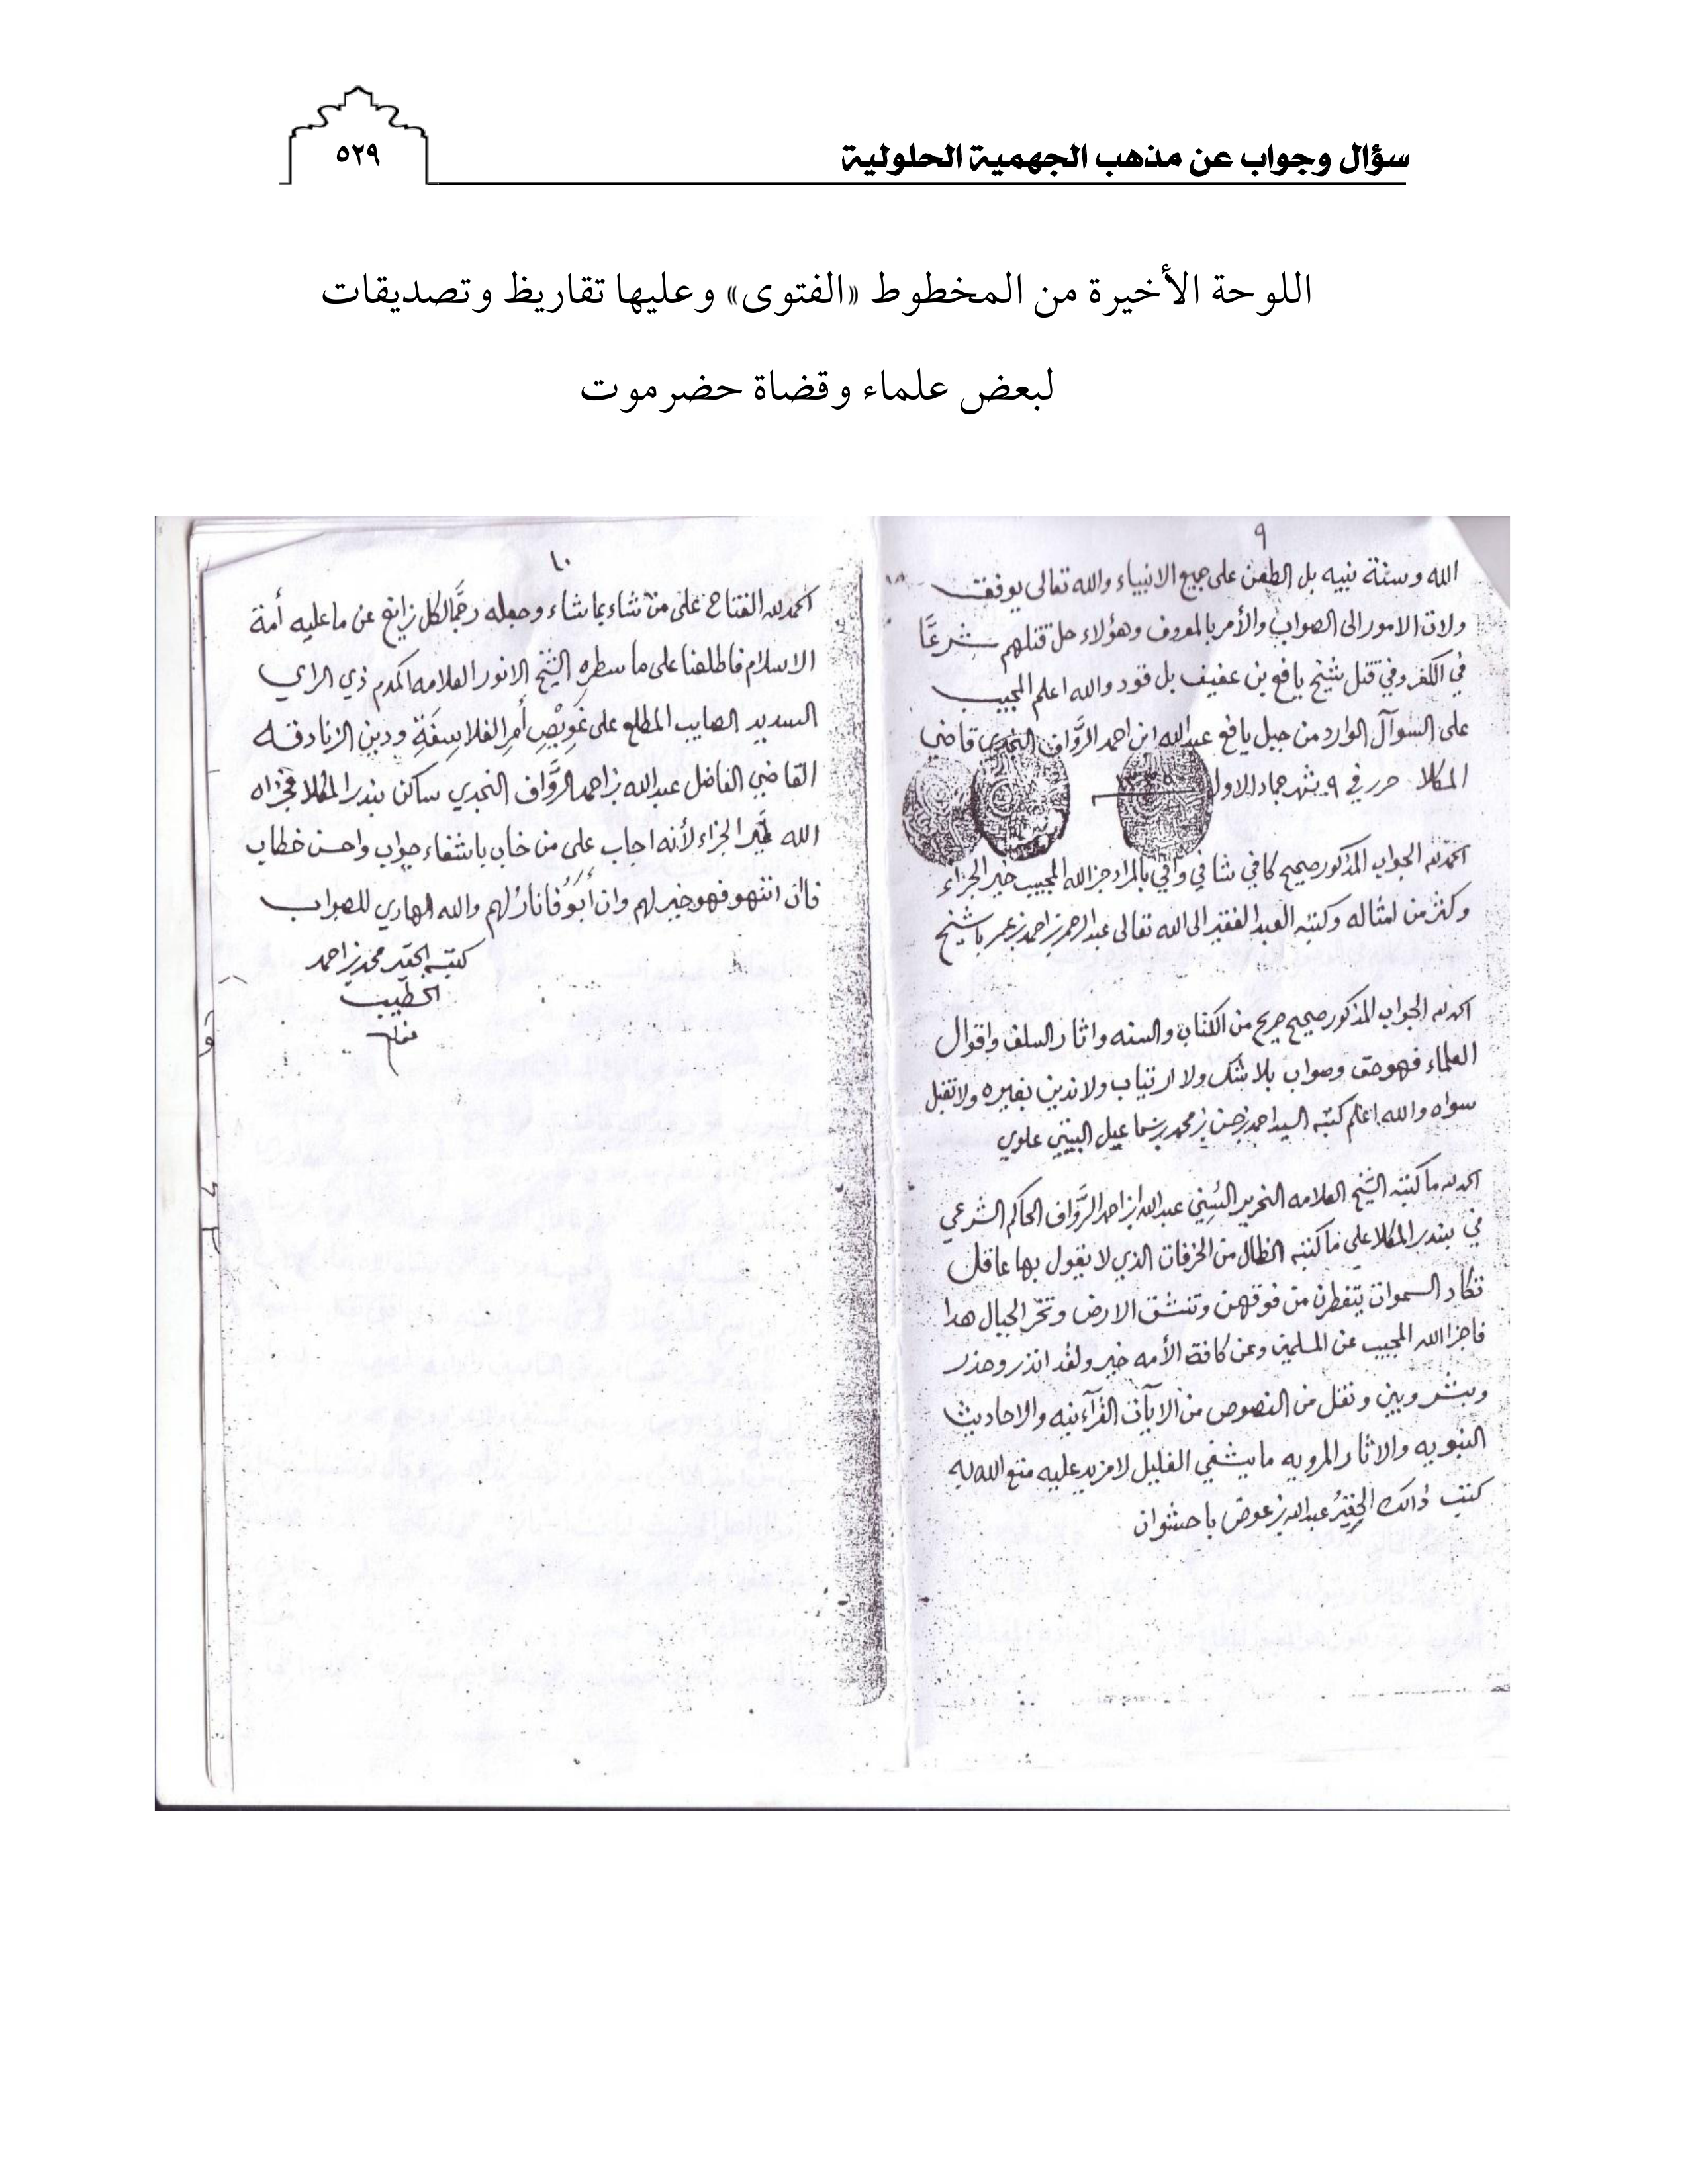 سؤال وجواب عن مذهب الجهمية الحلولية
٥٢٩
اللوحة الأخيرة من المخطوط «الفتوى» وعليها تقاريظ وتصديقات
لبعض علماء وقضاة حضرموت
٩
الله وسنة نبيه بل الطعن على جميع الانبياء والله تعالى يوفق
ولات الامور الى الصواب والأمر بالمعروف وهؤلاء حل قتلهم شرعًا
في الكفر وفي قتل شيخ يافع بن عفيف بل قود والله اعلم المجيب
على السوآل الوارد من جبل يافع عبدالله ابن احمد الرَّواف النجدي قاضي
المكلا حرر في ٩ شهر جماد الاول
الحمد لله الجواب المذكور صحيح كافي شافي وافي بالمراد جزا الله المجيب خير الجزاء
وكثر من امثاله وكتبه العبد الفقير الى الله تعالى عبدالرحمن بن احمد بن عمر باشيخ
الحمد لله الجواب المذكور صحيح صريح من الكتاب والسنه واثار السلف واقوال
العلماء فهو حق وصواب بلا شك ولا ارتياب ولا ندين بغيره ولا تقبل
سواه والله اعلم كتبه السيد احمد بن حسن بن محمد بن علوي
الحمد لله ما كتبه الشيخ العلامه النحرير السُني عبدالله بن احمد الرَّواف الحاكم الشرعي
في بندر المكلا على ما كتبه الظال من الخرفات الذي لا يقول بها عاقل
تكاد السموات يتفطرن من فوقهن وتنشق الارض وتخر الجبال هدا
فاجزا الله المجيب عن المسلمين وعن كافة الأمه خير ولقد انذر وحذر
وبشر وبين ونقل من النصوص من الآيات القرآءنيه والاحاديث
النبويه والاثار المرويه ما يشفي الغليل لا مزيد عليه متع الله به
كتب ذالك الحقيرُ عبدالله بن عوض باحشوان
١٠
الحمد لله الفتاح على من شاء بما شاء وجعله رجمًا لكل زايغ عن ما عليه أمة
الاسلام فاطلعنا على ما سطره الشيخ الانور العلامه المكرم ذي الراي
السديد الصايب المطلع على غَوِيْصِ أمرِ الفلاسِفَةِ ودين الزنادقه
القاضي الفاضل عبدالله بن احمد الرَّواف النجدي ساكن بندر المكلا فجزاه
الله خَير الجزاء لأنه اجاب على من خاب باشفاء جواب واحسن خطاب
فان انتهو فهو خير لهم وان أَبَوُ فانارُ لهم والله الهادي للصواب
كتبه الحقير محمد بن احمد
الخطيب